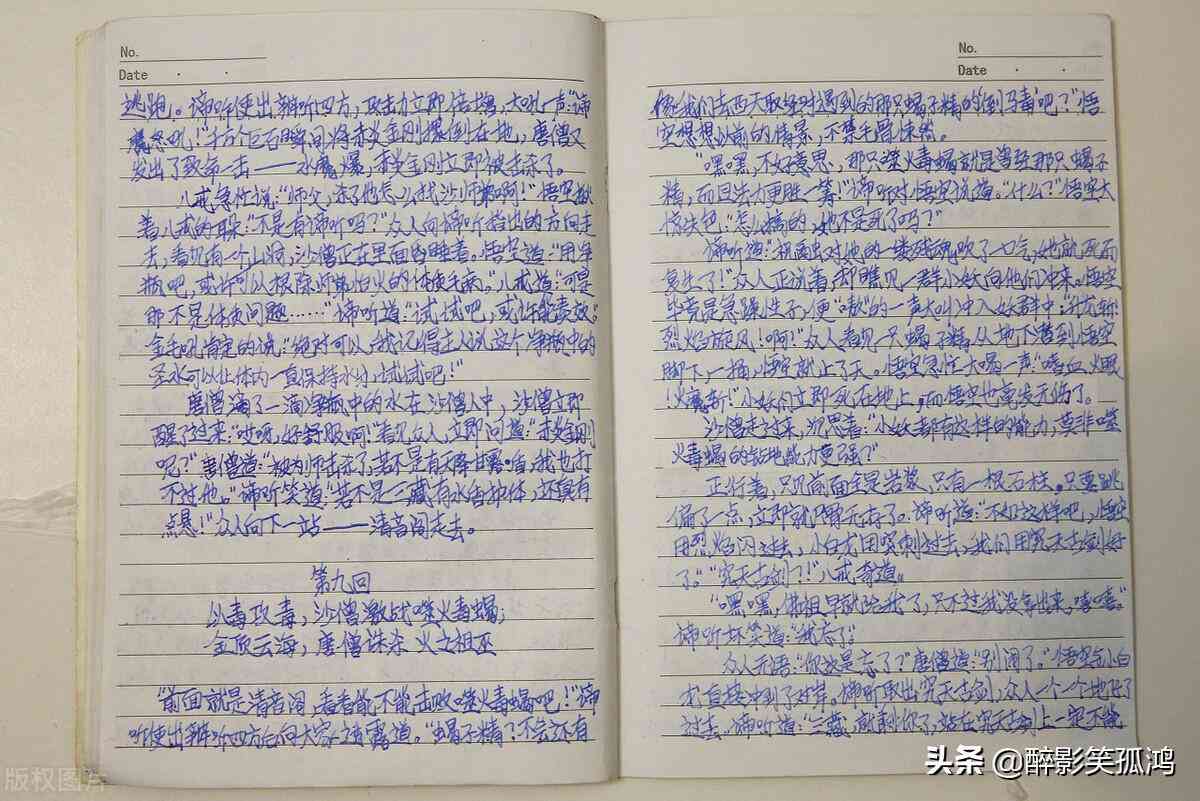 No.
Date
逃跑。谛听使出辨听四方,攻击力立即倍增,大吼一声:“谛
怒吼!”千万个巨石瞬间将赤炎金刚撂倒在地,唐僧又
发出了致命一击——水魔爆,赤炎金刚立即被击杀了。
八戒急忙说:“师父,杀了他怎么找沙师弟啊!”悟空揪
着八戒的耳朵:“不是有谛听吗?”众人向谛听指出的方向走
去,看见有一个山洞,沙僧正在里面昏睡着。悟空道:“用净
瓶吧,或许可以根除师弟怕火的体质毛病。”八戒道:“可是
那不是体质问题……”谛听道:“试试吧,或许能奏效。”
金毛吼肯定的说:“绝对可以,我记得主人说这个净瓶中的
圣水可以让体内一直保持水分,试试吧!”
唐僧滴了一滴净瓶中的水在沙僧人中,沙僧立即
醒了过来:“哎呀,好舒服啊!”看见众人,立即问道:“赤炎金刚
呢?”唐僧道:“被为师击杀了,若不是有天降甘露咱,我也打
不过他。”谛听笑道:“若不是三藏有水的神体,还真有
点悬!”众人向下一站——清音阁走去。
第九回
以毒攻毒,沙僧激战噬火毒蝎;
金顶云海,唐僧诛杀火之祖巫
“前面就是清音阁,看看能不能击败噬火毒蝎吧!”谛
听使出辨听四方后向大家透露道。“蝎子精?不会还有
No.
Date
像我们去西天取经时遇到的那只蝎子精的倒马毒吧?”悟
空想想以前的情景,不禁毛骨悚然。
“嘿嘿,不好意思,那只噬火毒蝎就是曾经那只蝎子
精,而且法力更胜一筹!”谛听对悟空说道。“什么?”悟空大
惊失色:“怎么搞的,她不是死了吗?”
谛听道:“祖巫对他的一缕残魂吹了七气,她就死而
复生了!”众人正说着,却瞧见一群小妖向他们冲来。悟空
毕竟是急躁性子,便“嗷”的一声大叫冲入妖群中:
烈焰旋风!啊!”众人看见一只蝎子精从地下遭到悟空
脚下,一捅,悟空就上了天。悟空急忙大喝一声:“嗜血火眼
!火魔斩!”小妖们立即死在地上,而悟空也毫发无伤了。
沙僧走过来,沉思着:“小妖都有这样的能力,莫非噬
火毒蝎的钻地能力更强?”
正行着,只见前面全是岩浆,只有一根石柱。只要跳
偏了一点,立即就尸骨无存了。谛听道:“不如这样吧,悟空
用烈焰闪过去,小白龙用突刺过去,我们用究天古剑好
了。”“究天古剑?!”八戒奇道。
“嘿嘿,佛祖早就给我了,只不过我没拿出来,嘻嘻。”
谛听坏笑道:“我忘了。”
众人无语:“你这是忘了?”唐僧道:“别闹了。”悟空与小白
龙直接冲到了对岸。谛听取出究天古剑,众人一个一个地飞了
过去。谛听道:“三藏,就剩你了,站在究天古剑上一定不能
版权图片
头条 @醉影笑孤鸿